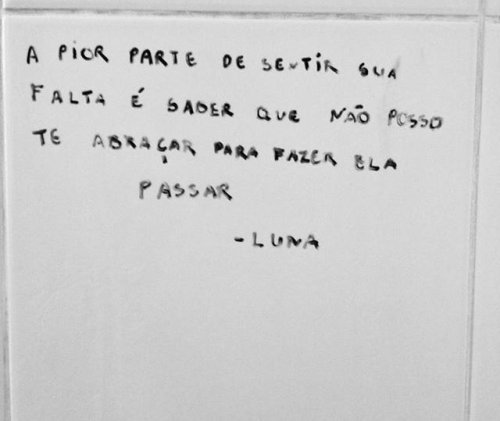 A PIOR PARTE DE SENTIR SUA
FALTA É SABER QUE NÃO POSSO
TE ABRAÇAR PARA FAZER ELA
PASSAR
-LUNA